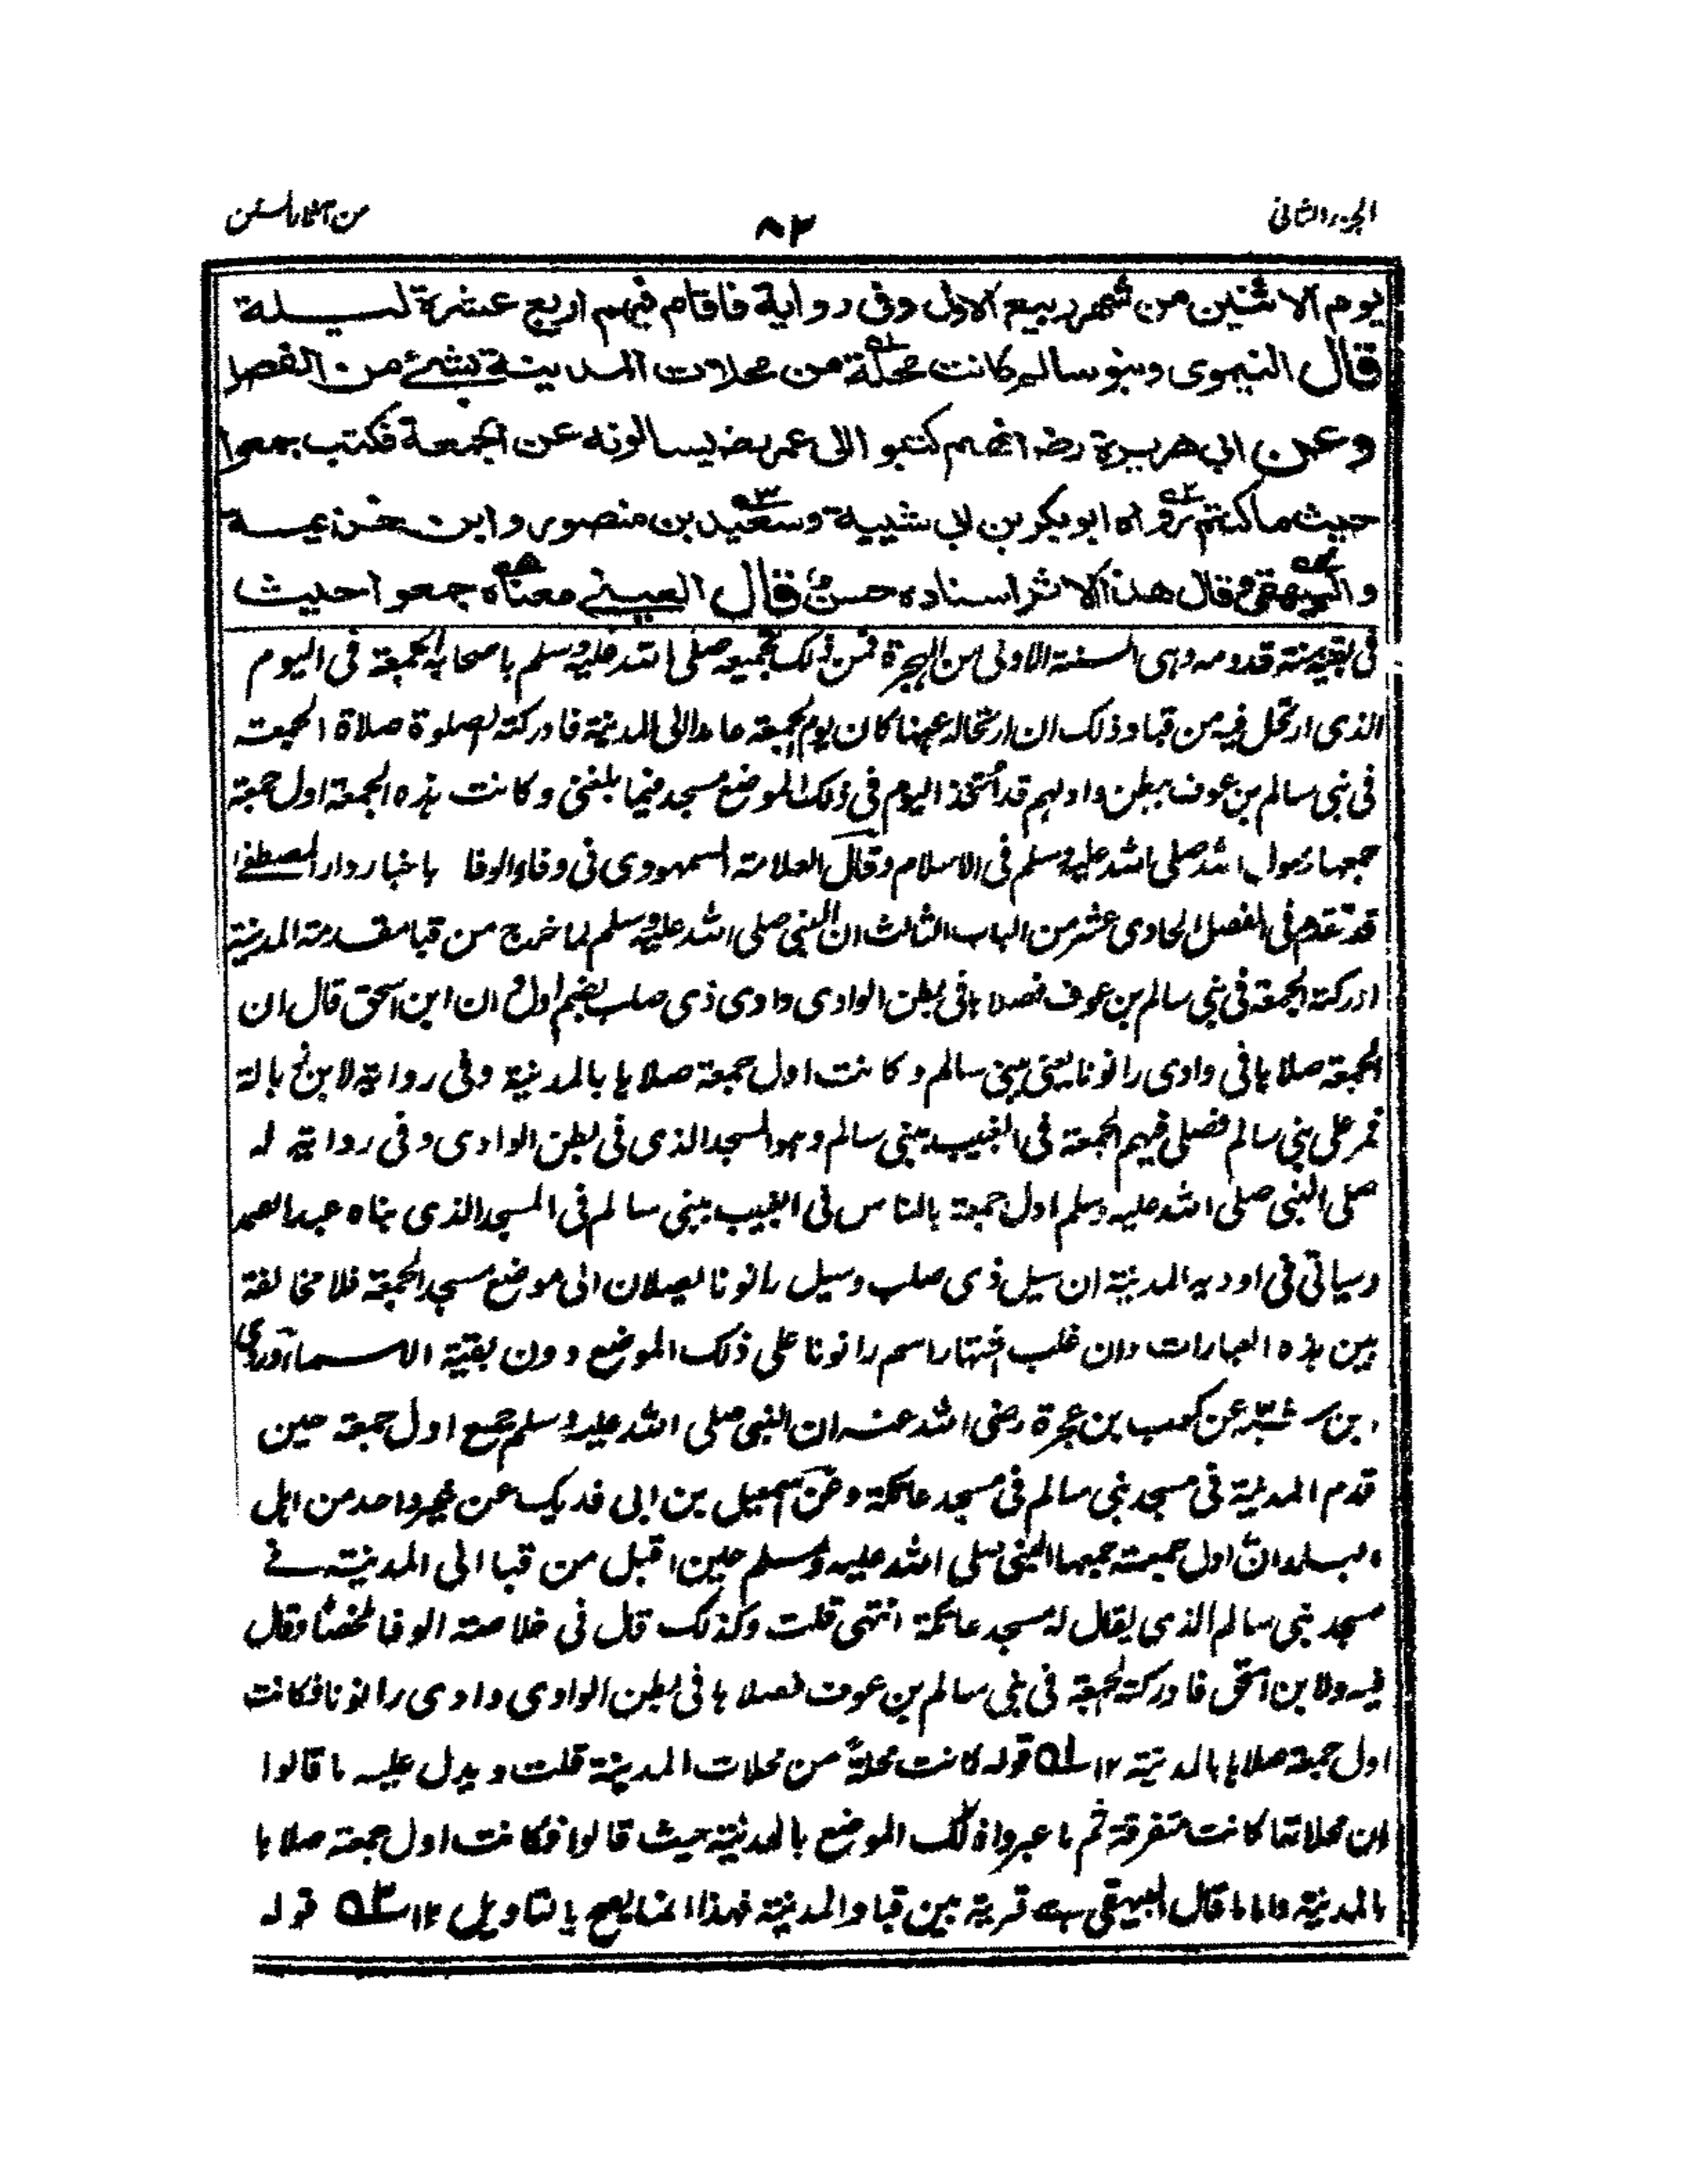 الجزء الثانى ٨٢ من آثار السنن
يوم الاثنين من شهر ربيع الاول وفى رواية فاقام فيهم اربع عشرة ليلة
قال النيموى وبنو سالم كانت محلة من محلات المدينة بشئ من الفصل
وعن ابى هريرة رضـ انهم كتبوا الى عمر رضـ يسالونه عن الجمعة فكتب جمعوا
حيث ما كنتم رواه ابو بكر بن ابى شيبة وسعيد بن منصور وابن خزيمة
والبيهقى وقال هذا الاثر اسناده حسن قال العينى معناه جمعوا حيث
فى بقية سنة قدومه وهى السنة الاولى من الهجرة فمن ذلك تجميعه صلى الله عليه وسلم باصحابه الجمعة فى اليوم
الذى ارتحل فيه من قبا وذلك ان ارتحاله عنها كان يوم الجمعة عامدا الى المدينة فادركته الصلوة صلاة الجمعة
فى بنى سالم بن عوف ببطن واد لهم قد اتخذ اليوم فى ذلك الموضع مسجد فيما بلغنى وكانت هذه الجمعة اول جمعة
جمعها رسول الله صلى الله عليه وسلم فى الاسلام وقال العلامة السمهودى فى وفاء الوفا باخبار دار المصطفى
قد تقدم فى الفصل الحادى عشر من الباب الثالث ان النبى صلى الله عليه وسلم لما خرج من قبا مقدمه المدينة
ادركته الجمعة فى بنى سالم بن عوف فصلاها فى بطن الوادى وادى ذى صلب بضم اوله ان ابن اسحق قال ان
الجمعة صلاها فى وادى رانونا يعنى ببنى سالم وكانت اول جمعة صلاها بالمدينة وفى رواية لابن زبالة
فمر على بنى سالم فصلى فيهم الجمعة فى الغبيب ببنى سالم وهو المسجد الذى فى بطن الوادى وفى رواية له
صلى النبى صلى الله عليه وسلم اول جمعة بالناس فى الغبيب ببنى سالم فى المسجد الذى بناه عبد الصمد
وسياتى فى اودية المدينة ان سيل ذى صلب وسيل رانونا يصلان الى موضع مسجد الجمعة فلا مخالفة
بين هذه العبارات وان غلب اشتهار اسم رانونا على ذلك الموضع دون بقية الاسماء وروى
ابن شبة عن كعب بن عجرة رضى الله عنه ان النبى صلى الله عليه وسلم جمع اول جمعة حين
قدم المدينة فى مسجد بنى سالم فى مسجد عاتكة وعن اسمعيل بن ابى فديك عن غير واحد من اهل
البلد ان اول جمعة جمعها النبى صلى الله عليه وسلم حين اقبل من قبا الى المدينة فى
مسجد بنى سالم الذى يقال له مسجد عاتكة انتهى قلت وكذلك قال فى خلاصة الوفا ملخصا وقال
فيه ولابن اسحق فادركته الجمعة فى بنى سالم بن عوف فصلاها فى بطن الوادى وادى رانونا فكانت
اول جمعة صلاها بالمدينة ١٢ ١ه قوله كانت محلة من محلات المدينة قلت ويدل عليه ما قالوا
ان محلاتها كانت متفرقة ثم ما عبروا ذلك الموضع بالمدينة حيث قالوا فكانت اول جمعة صلاها
بالمدينة واما ما قال البيهقى هـ قرية بين قبا والمدينة فهذا انما يصح بالتاويل ١٢ ٢ه قوله